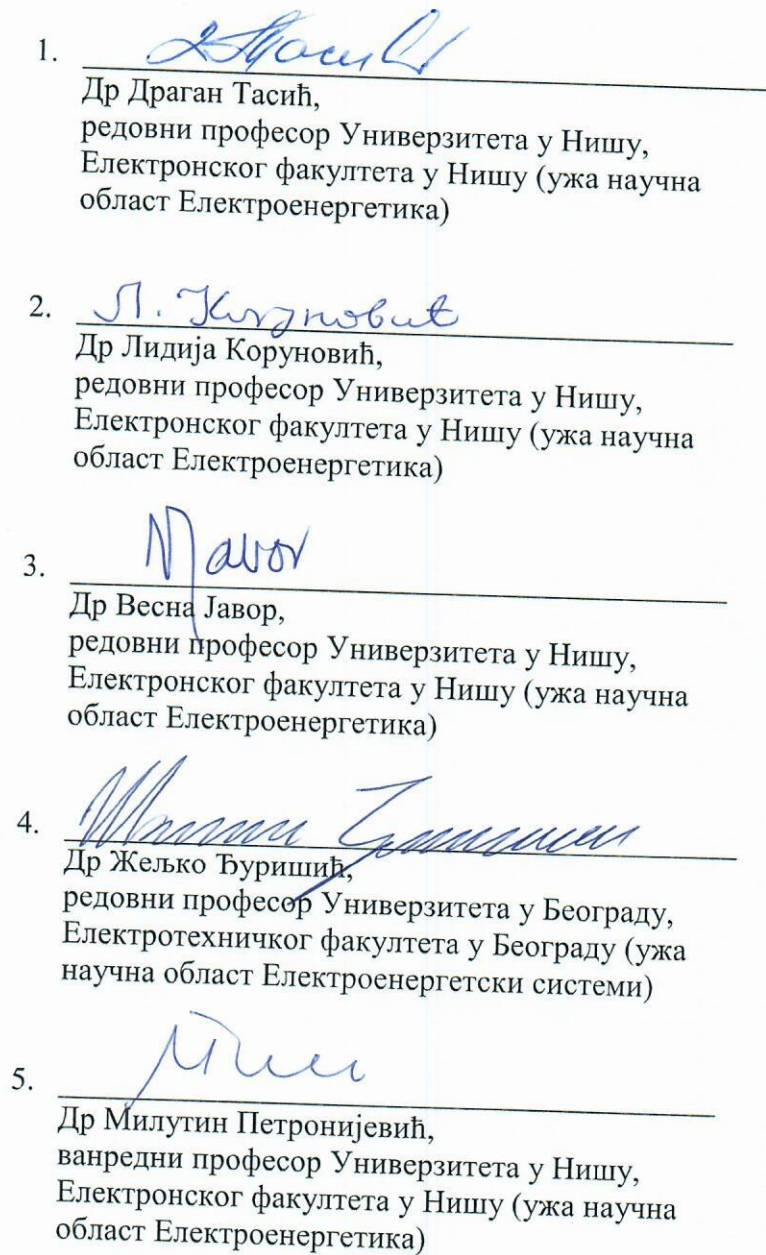 1.
Др Драган Тасић,
редовни професор Универзитета у Нишу,
Електронског факултета у Нишу (ужа научна
област Електроенергетика)
2. Л. Коруновић
Др Лидија Коруновић,
редовни професор Универзитета у Нишу,
Електронског факултета у Нишу (ужа научна
област Електроенергетика)
3.
Др Весна Јавор,
редовни професор Универзитета у Нишу,
Електронског факултета у Нишу (ужа научна
област Електроенергетика)
4.
Др Жељко Ђуришић,
редовни професор Универзитета у Београду,
Електротехничког факултета у Београду (ужа
научна област Електроенергетски системи)
5.
Др Милутин Петронијевић,
ванредни професор Универзитета у Нишу,
Електронског факултета у Нишу (ужа научна
област Електроенергетика)